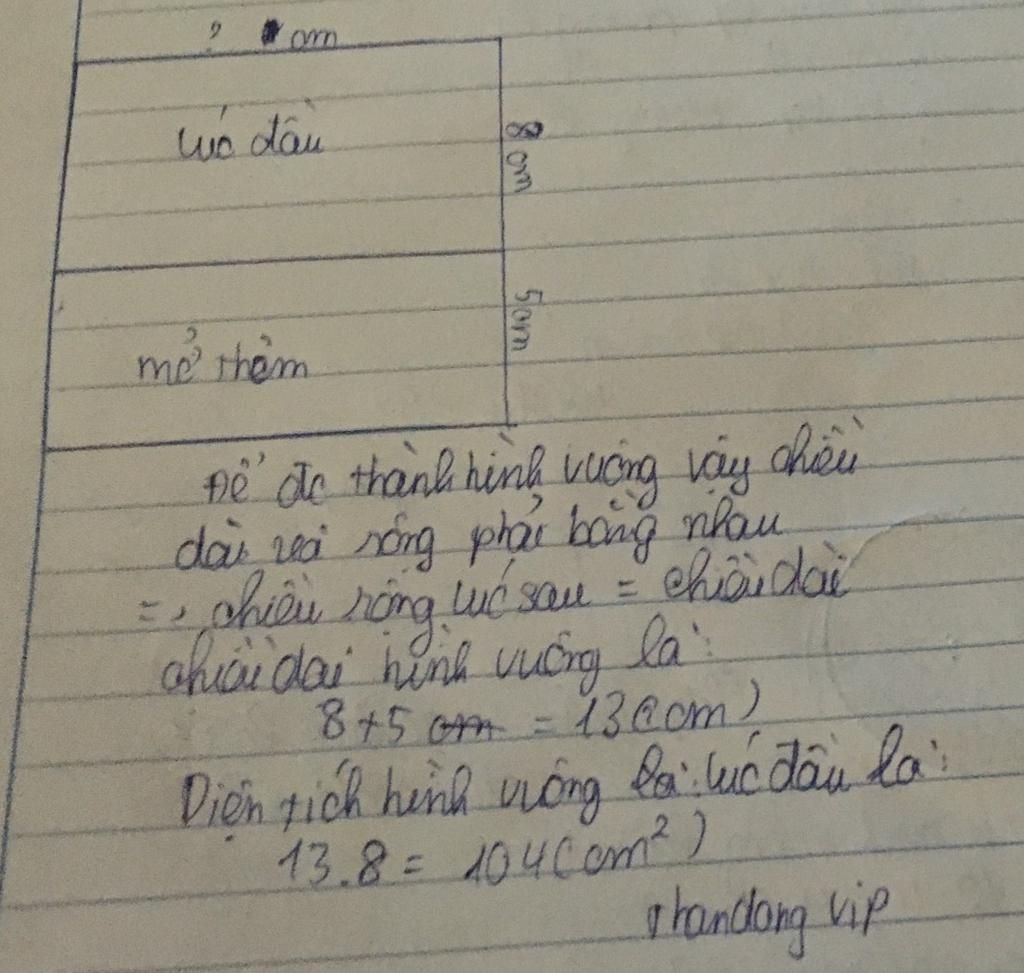 ? cm
lúc đầu
8 cm
5cm
mở thêm
Để đc thành hình vuông vậy chiều
dài và rộng phải bằng nhau
=> chiều rộng lúc sau = chiều dài
chiều dài hình vuông là:
8+5 cm = 13(cm)
Diện tích hình vuông là: lúc đầu là:
13.8 = 104(cm²)
thandong vip